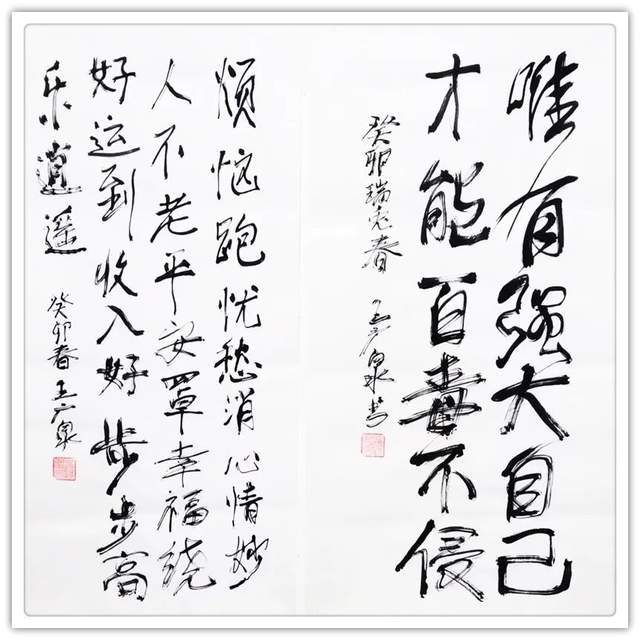 唯有强大自己
才能百毒不侵
癸卯瑞兔春 王广泉书
烦恼跑忧愁消心情妙
人不老平安罩幸福绕
好运到收入好步步高
乐逍遥
癸卯春王广泉